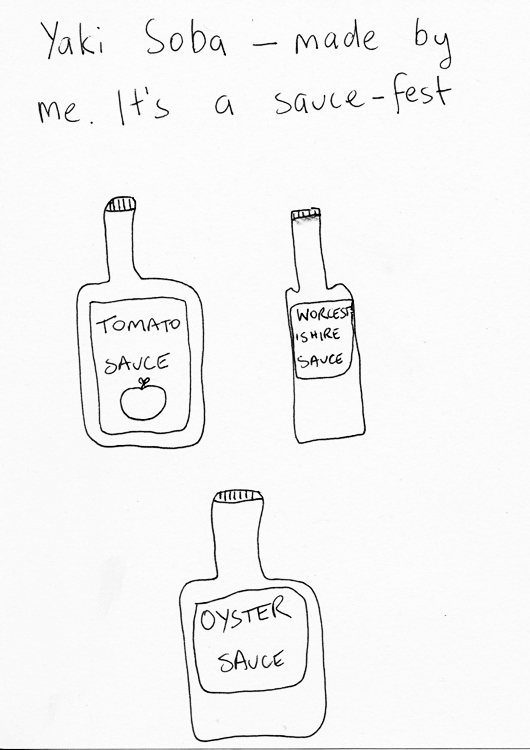 Yaki Soba – made by
me. It's a sauce-fest
TOMATO
SAUCE
WORCEST
ISHIRE
SAUCE
OYSTER
SAUCE